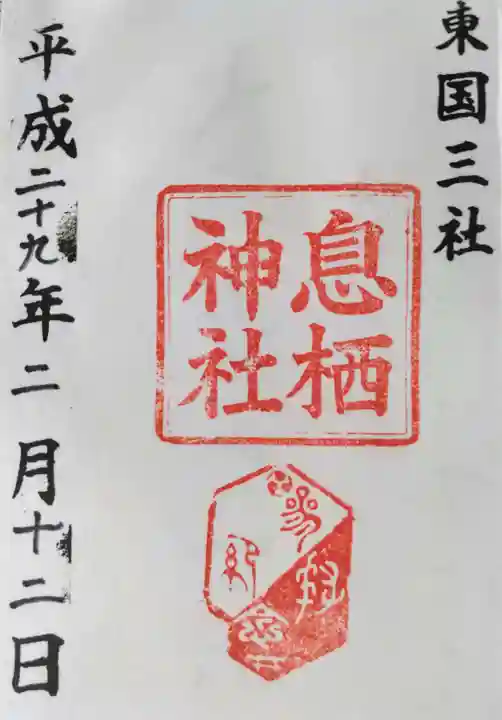 東国三社
息栖
神社
参拝
記念
平成二十九年二月十二日